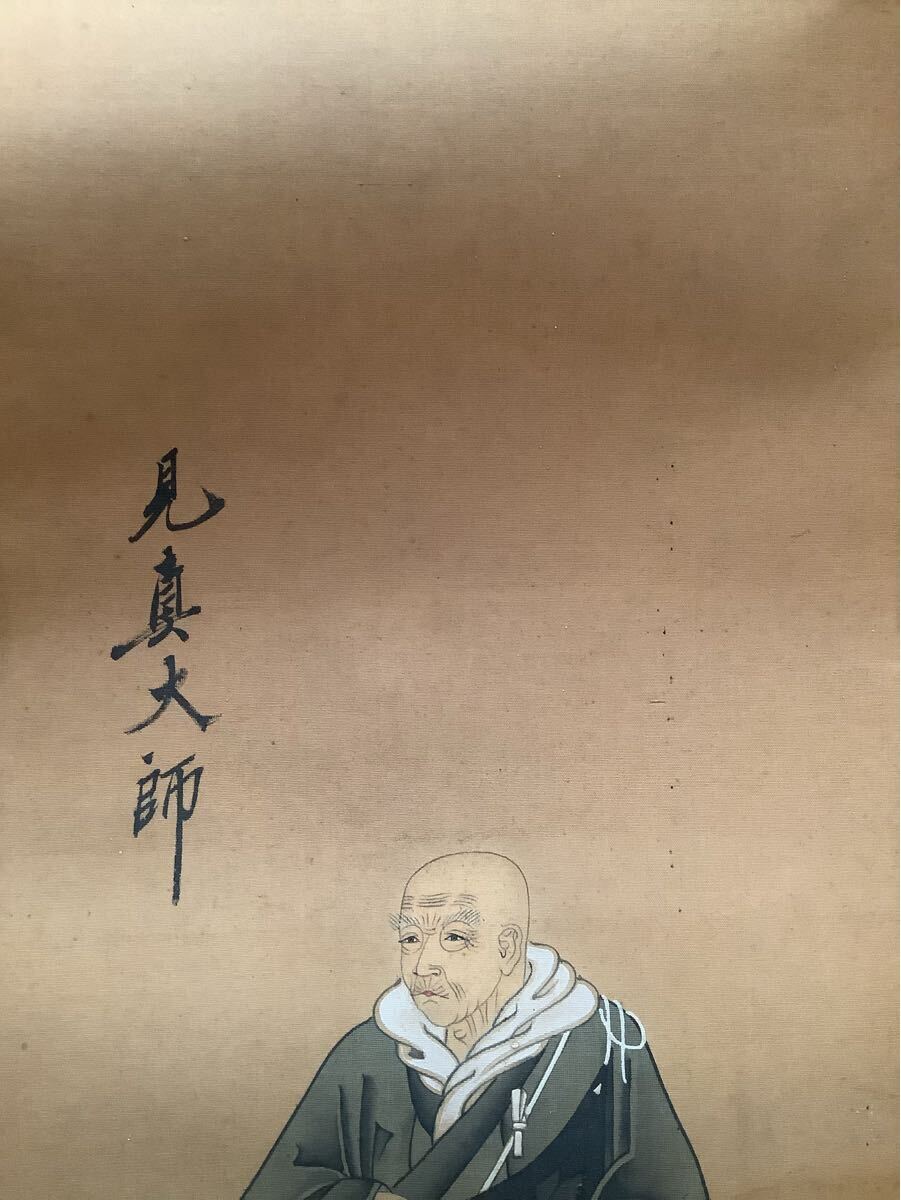 見真大師